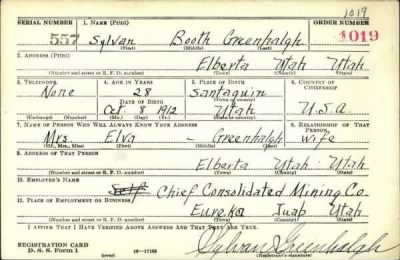 1019
SERIAL NUMBER 1. NAME (Print) ORDER NUMBER
557 Sylvan Booth Greenhalgh 1019
(First) (Middle) (Last)
2. ADDRESS (Print)
Elberta Utah Utah
(Number and street or R. F. D. number) (Town) (County) (State)
3. TELEPHONE 4. AGE IN YEARS 5. PLACE OF BIRTH 6. COUNTRY OF CITIZENSHIP
None 28 Santaquin
DATE OF BIRTH (Town or county)
Oct 8 1912 Utah U.S.A
(Mo.) (Day) (Yr.) (State or country)
7. NAME OF PERSON WHO WILL ALWAYS KNOW YOUR ADDRESS 8. RELATIONSHIP OF THAT PERSON
Mrs Elva - Greenhalgh wife
(Mr., Mrs., Miss) (First) (Middle) (Last)
9. ADDRESS OF THAT PERSON
Elberta Utah Utah
(Number and street or R. F. D. number) (Town) (County) (State)
10. EMPLOYER'S NAME
Self Chief Consolidated Mining Co.
11. PLACE OF EMPLOYMENT OR BUSINESS
Eureka Juab Utah
(Number and street or R. F. D. number) (Town) (County) (State)
I AFFIRM THAT I HAVE VERIFIED ABOVE ANSWERS AND THAT THEY ARE TRUE.
REGISTRATION CARD
D. S. S. Form 1 (over) 16-17105 Sylvan Greenhalgh
(Registrant's signature)